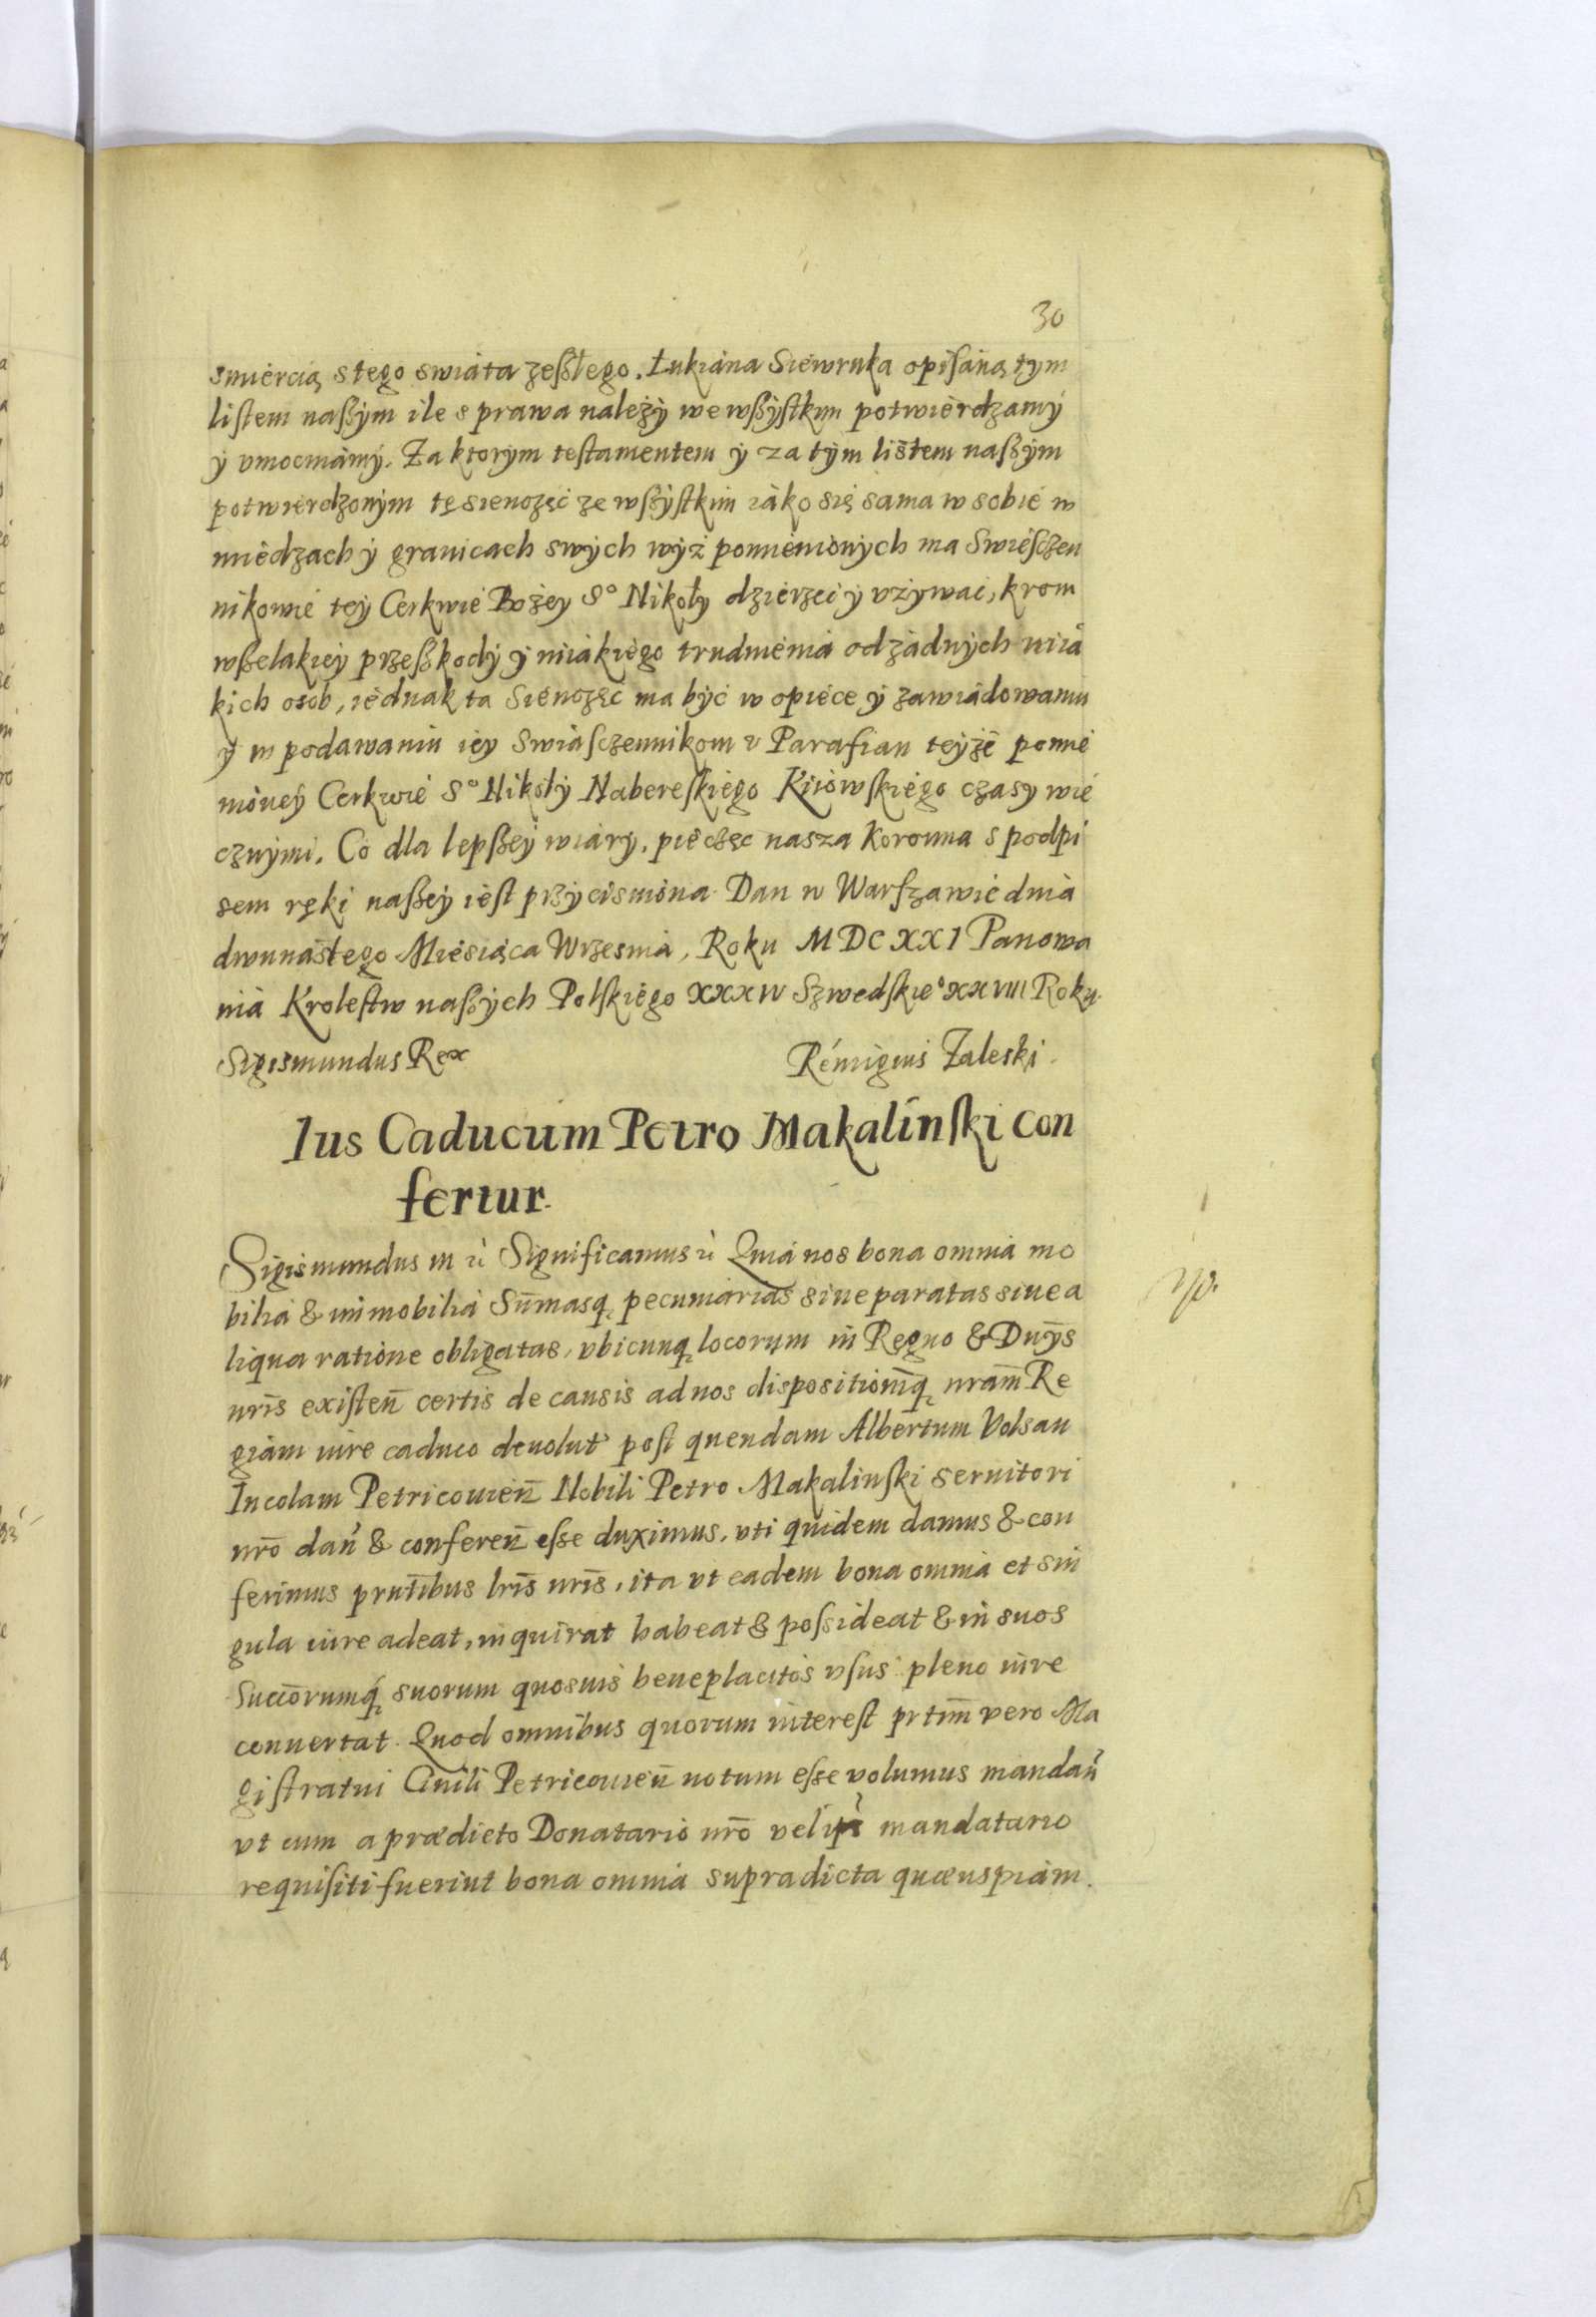 30
smiercią s tego swiata zeszłego. Łukiana Siewruka opisaną tym
listem naszym ile s prawa należy we wszystkim potwierdzamy
y vmocniamy. Za ktorym testamentem y za tym listem naszym
potwierdzonym tę sienożęć ze wszystkim iako się sama w sobie w
miedzach y granicach swych wyż pomienionych ma Swiesczen
nikowie tey Cerkwie Bożey S° Nikoły dzierzeć y vżywać, krom
wszelakiey przeszkody y niiakiego trudnienia od żadnych niia
kich osob, iednak ta Sienożęć ma być w opiece y zawiadowaniu
y w podawaniu iey Swiasczennikom v Parafian teyże pomie
nioney Cerkwie S° Nikoły Nabereskiego Kiiowskiego czasy wie
cznymi. Co dla lepszey wiary, pieczęc nasza Koronna s podpi
sem ręki naszey iest przycisniona. Dan w Warszawie dnia
dwunastego Miesiąca Wrzesnia, Roku MDCXXI Panowa
nia Krolestw naszych Polskiego XXXIV Szwedskie° XXVIII Roku.
Sigismundus Rex Remigius Zaleski.
Ius Caducum Petro Makalinski con
fertur.
Sigismundus III &c Significamus &c Quia nos bona omnia mo
bilia & immobilia Sum̄asq, pecuniarias siue paratas siue a
liqua ratione obligatas, vbicunq, locorum in Regno & Dnijs
nris̄ existen̄ certis de causis ad nos dispositionem̄q, nram̄ Re
giam iure caduco deuolut post quendam Albertum Volsan
Incolam Petricouien̄ Nobili Petro Makalinski seruitori
nrō dan & conferen̄ esse duximus, vti quidem damus & con
ferimus prntībus lris̄ nris̄, ita vt eadem bona omnia et sin
gula iure adeat, inquirat habeat & possideat & in suos
Succōrumq, suorum quosuis beneplacitos vsus pleno iure
conuertat. Quod omnibus quorum interest prtim̄ vero Ma
gistratui Ciuili Petricouien̄ notum esse volumus mandan
vt cum a prædicto Donatario nrō vel ips mandatario
requisiti fuerint bona omnia supradicta quæuspiam.